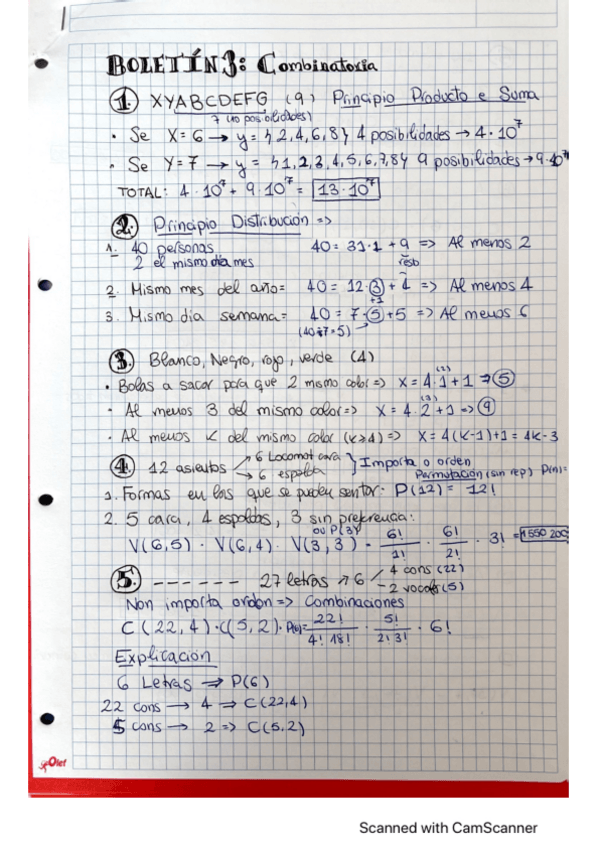 BOLETÍN 3: Combinatoria
1. XYABCDEFG (9) Principio Producto e Suma
7 (10 posibilidades)
• Se X=6 → y = {2,4,6,8} 4 posibilidades → 4·10⁷
• Se Y=7 → y = {1,2,3,4,5,6,7,8} 9 posibilidades → 9·10⁷
TOTAL: 4·10⁷ + 9·10⁷ = 13·10⁷
2. Principio Distribución =>
1. 40 personas 40 = 31·1 + 9 => Al menos 2
2 el mismo día mes resto
2. Mismo mes del año = 40 = 12·3 + 4 => Al menos 4
+1
3. Mismo día semana = 40 = 7·5 + 5 => Al menos 6
(40÷7=5)
3. Blanco, Negro, rojo, verde (4)
• Bolas a sacar para que 2 mismo color => X = 4·1 + 1 => 5
(2)
• Al menos 3 del mismo color => X = 4·2 + 1 => 9
(3)
• Al menos K del mismo color (K≥4) => X = 4(K-1)+1 = 4K-3
4. 12 asientos 6 Locomot cara Importa o orden
6 espalda Permutación (sin rep) P(n)=
1. Formas en las que se pueden sentar: P(12) = 12!
2. 5 cara, 4 espaldas, 3 sin preferencia:
ou P(3)
V(6,5) · V(6,4) · V(3,3) = 6!/1! · 6!/2! · 3! = 1550200
5. - - - - - - 27 letras 6 4 cons (22)
2 vocales (5)
Non importa orden => Combinaciones
C(22,4)·C(5,2)·P(6) = 22!/4! 18! · 5!/2! 3! · 6!
Explicación
6 Letras => P(6)
22 cons → 4 => C(22,4)
5 cons → 2 => C(5,2)
Olef
Scanned with CamScanner